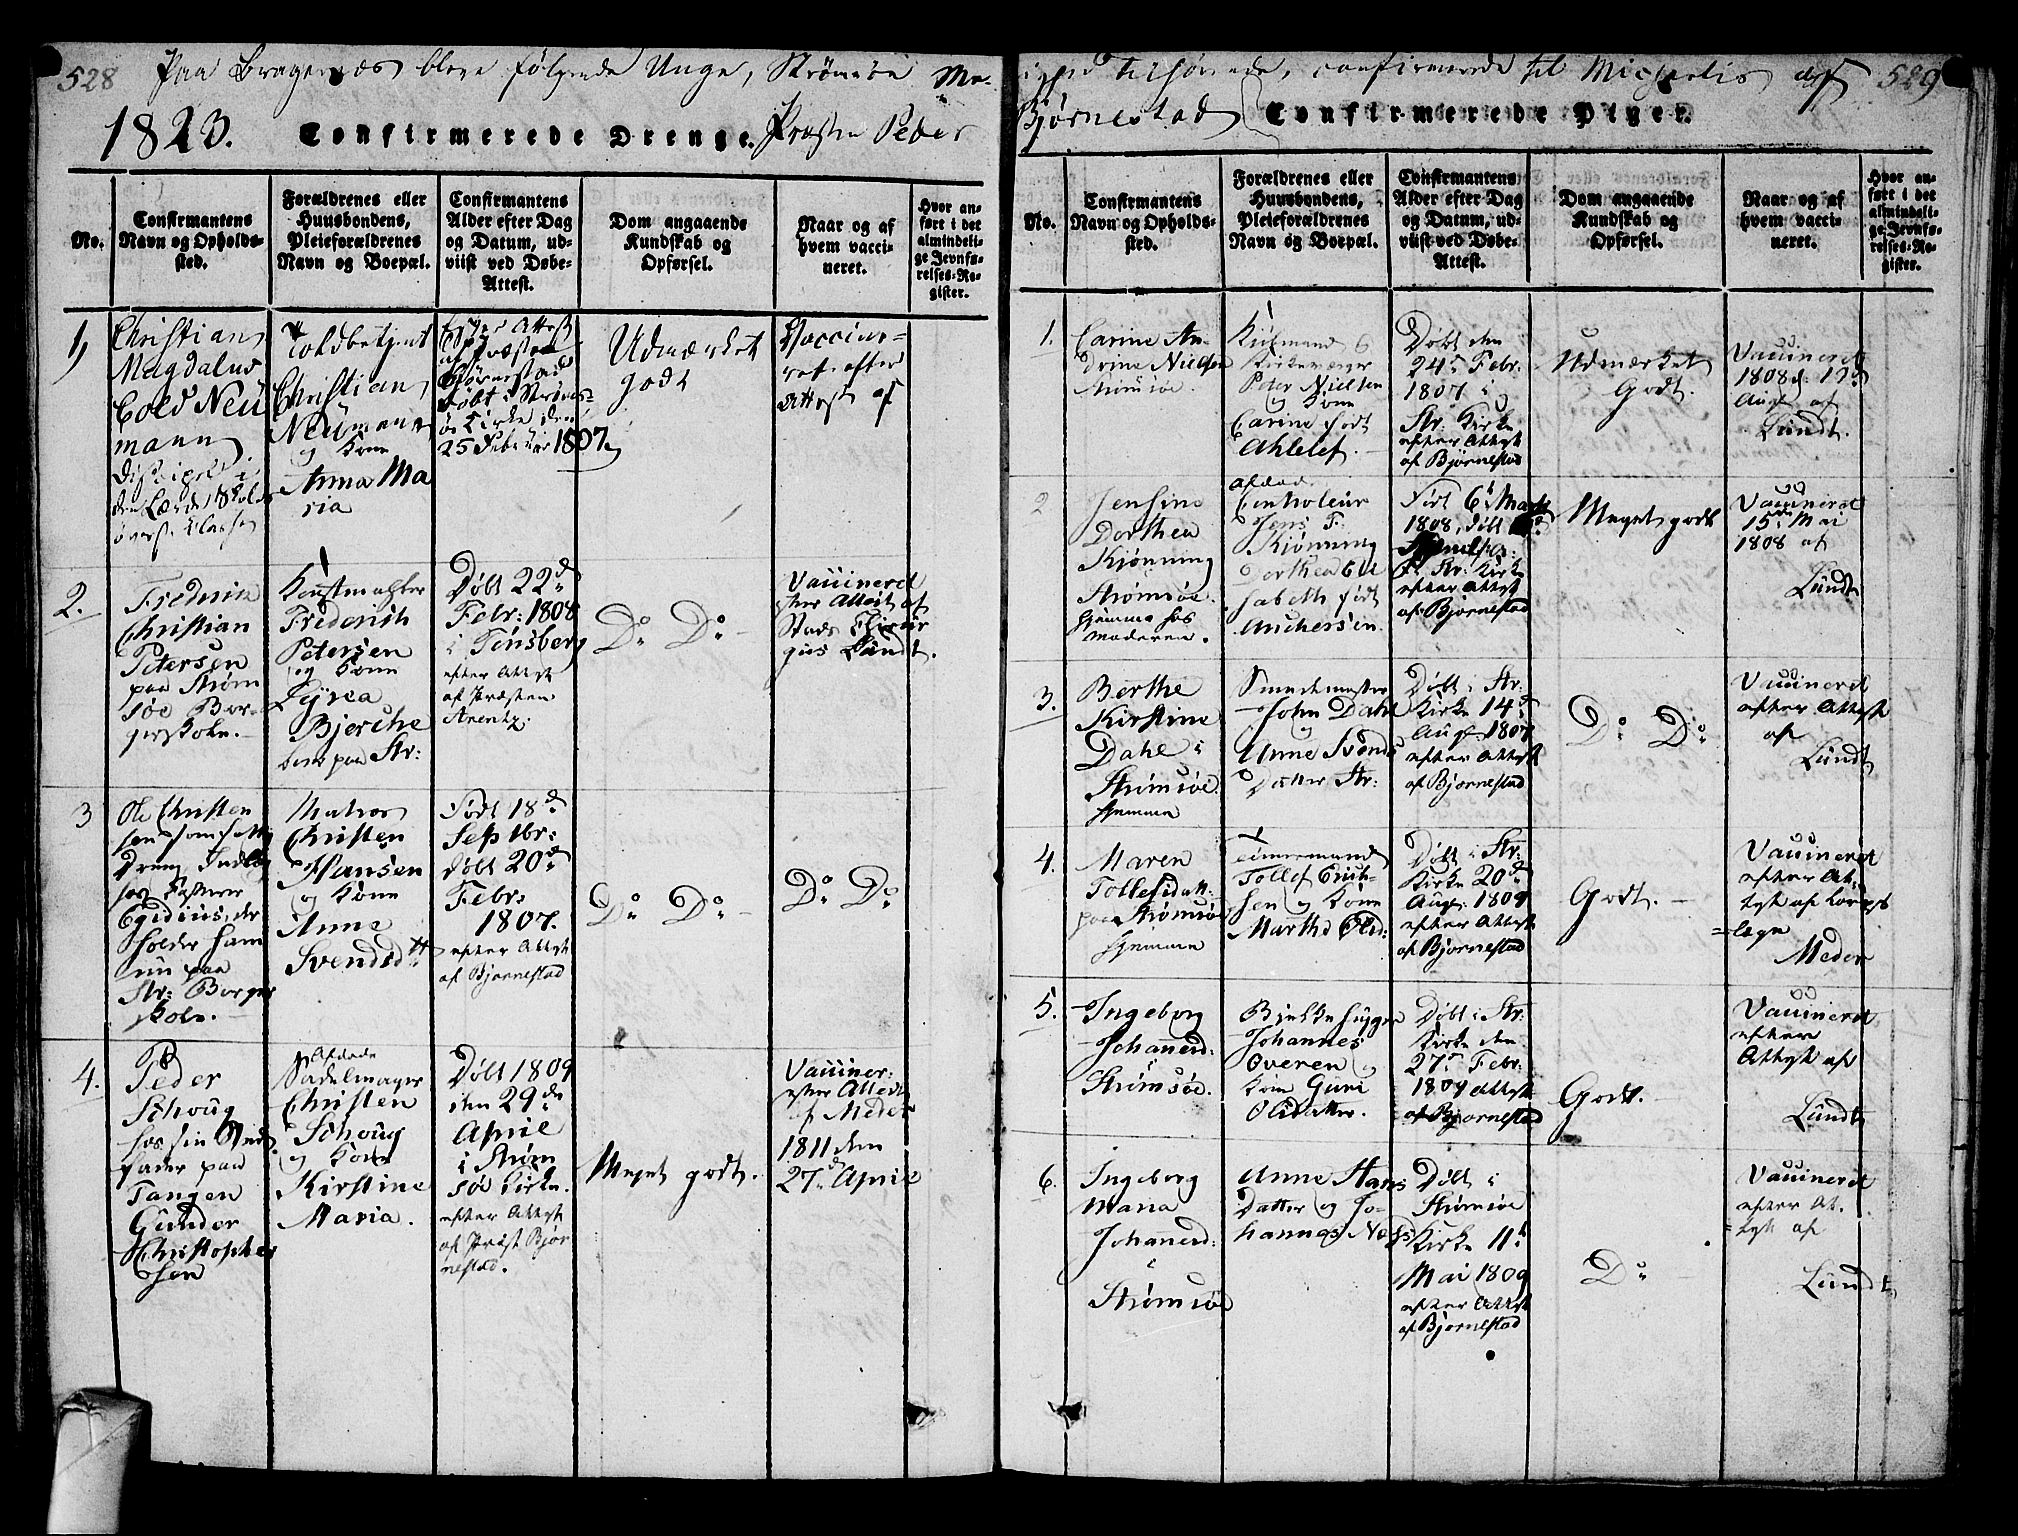 528
Paa Bragernæs bleve følgende Unge, Strømsøe Me-
1823. Confirmerede Drenge. Præsten Peder
No.
Confirmantens
Navn og Opholds-
sted.
Forældrenes eller
Huusbondens,
Pleieforældrenes
Navn og Boepæl.
Confirmantens
Alder efter Dag
og Datum, ud-
viist ved Døbe-
Attest.
Dom angaaende
Kundskab og
Opførsel.
Naar og af
hvem vacci-
neret.
Hvor an-
ført i det
almindeli-
ge Jevnfø-
relses-Re-
gister.
1,
Christian
Magdalus
Cold Neu
mann
Discipel i
den Lærde Skoles
øverste Classe
Toldbetjent
Christian
Neumann
og Kone
Anna Ma
ria
Attest
af Præsten
Bjørnestad
Døbt i Strøms-
øe Kirke den
25 Februar 1807.
Udmærket
godt
Vaccine-
ret efter
Attest af
2.
Frederik
Christian
Petersen
paa Strøm
søe Bor-
gerskole.
Frederich
Petersen
og Kone
Bjerche
boer paa Str:
Døbt 22d
Febr: 1808
i Tønsberg
efter Attest
af Præsten
Arentz.
Do Do
Vaccineret
efter Attest af
Stads Chirur
gus Lundt.
3
Ole Christen
sen
Egidius, der
holder ham
nu paa
Str: Borger
skole.
Matros
Christen
Hansen
og Kone
Anne
Svendsdtt
Født 18d
Septbr:
Døbt 20d
Febr:
1807.
efter Attest
af Bjørnestad
Do Do
Do Do
4.
Peder
Schoug
hos sin Sted
fader paa
Tangen
Gunder
Christopher
sen
Afdøde
Sadelmager
Christen
Schoug
og Kone
Kirstine
Maria.
Døbt 1809
den 29de
April
i Strøm
søe Kirke.
efter Attest
af Præst Bjør
nestad.
Meget godt.
Vacciner:
efter Attest
af Meder
1811 den
27d April
529
tilhørende, confirmerede til Michaelis af
Bjørnestad Confirmerede Piger.
No.
Confirmantens
Navn og Opholds-
sted.
Forældrenes eller
Huusbondens,
Pleieforældrenes
Navn og Boepæl.
Confirmantens
Alder efter Dag
og Datum, ud-
viist ved Døbe-
Attest.
Dom angaaende
Kundskab og
Opførsel.
Naar og af
hvem vacci-
neret.
Hvor an-
ført i det
almindeli-
ge Jevnfø-
relses-Re-
gister.
1.
Carine An-
drine Nielsen
Strømsøe.
Kiøbmand
Kirkeværger
Peter Nielsen
og Kone
Carine født
Ahlelef.
Døbt den
24d Febr.
1807 i
Str: Kirke
efter Attest
af Bjørnestad
Udmærket
Godt.
Vaccineret
1808 d. 17d
Aug: af
Lundt.
2
Jensine
Dorthea
Kjønning
Strømsøe.
hjemme hos
moderen.
afdød
Contoleur
Jens F.
Kjønning
Dorthea Eli
sabeth født
Anchersen.
Født 6t Marts
1808, døbt
Str: Kirke
efter Attest
af Bjørnestad
Meget godt
Vaccineret
15 Mai
1808 af
Lundt
3.
Berthe
Kirstine
Dahl i
Strømsøe.
hjemme
Smedemester
John Dahl
og
Anne Svends
Datter Str:
Døbt i Str:
Kirke 14d
Aug: 1807
efter Attest
af Bjørnestad
Do Do
Vaccineret
efter Attest
af
Lundt
4.
Maren
Tollefsdatt:
paa Strømsøe
hjemme
Tømmermand
Tollef Erich-
sen og Kone
Marthe Olsd:
Døbt i Str:
Kirke 20d
Aug: 1809
efter Attest
af Bjørnestad
Godt.
Vaccineret
efter At-
test af Corps
=læge
Meder
5.
Ingeborg
Johannesd:
Strømsøe.
Bjelkehugger
Johannes
Overen og
Kone Guri
Olsdatter.
Døbt i Str:
Kirke den
27d Febr:
1809 Attest
af Bjørnestad
Godt.
Vaccineret
efter
Attest af
Lundt
6.
Ingeborg
Maria
Johannesd:
i
Strømsøe
Anne Hans
Datter og Jo-
hannes Næss
Døbt i
Strømsøe
Kirke 11t
Mai 1809
efter Attest
af Bjørnestad
Do
Vaccineret
efter At-
test af
Lundt